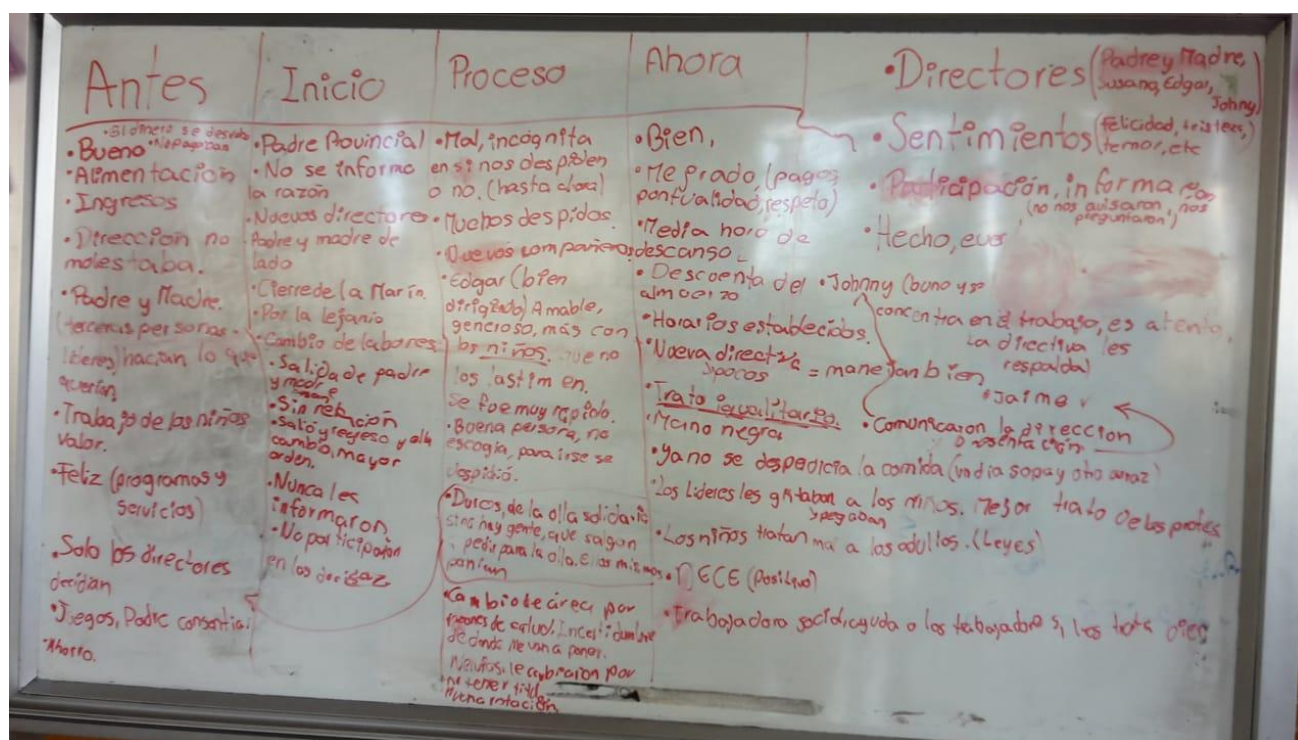 Antes
• El dinero se
• No pagaban
• Bueno
• Alimentación
• Ingresos
• Dirección no
molestaba.
• Padre y Madre.
(terceras personas
lideres) hacian lo que
querían
• Trabajo de los niños
valor.
• Feliz (programas y
servicios)
• Solo los directores
decidan
• Juegos, Padre consentia.
• Ahorro.
Inicio
• Padre Provincial
• No se informo
la razón
• Nuevos directores
Padre y madre de
lado
• Cierre de la Marín.
• Por la lejanía
• Cambio de labores.
• Salida de padre
y madre
• Sin relación
• Saló y regreso y
cambio, mayor
orden.
• Nunca les
informaron.
• No participación
en las
Proceso
• Mal, incógnita
en si nos despiden
o no. (hasta ahora)
• Muchos despidos.
• Nuevos compañeros
• Edgar (bien
dirigido) Amable,
generoso, más con
los niños. que no
los lastimen.
Se fue muy rápido.
• Buena persona, no
escogía, para irse se
despidió.
• Duros, de la olla solidaria
si no hay gente, que salgan
a pedir para la olla. Ellos mismos
ponían
Cambio de área por
razones de salud. Incertidumbre
de donde me van a poner.
le cambiaron por
no tener
Mucha rotación.
Ahora
• Bien,
• Me grado, (pagos
puntualidad, respeto)
• Media hora de
descanso.
• Descuenta del
almuerzo
• Horarios establecidos.
• Nueva directiva
y pocos = manejan bien
• Trato igualitario.
• Mano negra
• Ya no se despedicia la comida (un dia sopa y otro arroz)
• Los lideres les gritaban a los niños. Mejor trato de los profes
y pegaban
• Los niños tratan mal a los adultos. (Leyes)
• DECE (positivo)
• Trabajadora social, ayuda a los trabajadores, les trata bien
• Directores (Padre y Madre,
Susana, Edgar,
Johny)
• Sentimientos (felicidad, tristeza,
temor, etc
• Participación, información
(no nos avisaron, nos
preguntaron)
• Hecho,
• Johnny (bueno y se
concentra en el trabajo, es atento,
La directiva les
respalda)
• Jaime
• Comunicaron la direccion
presentación